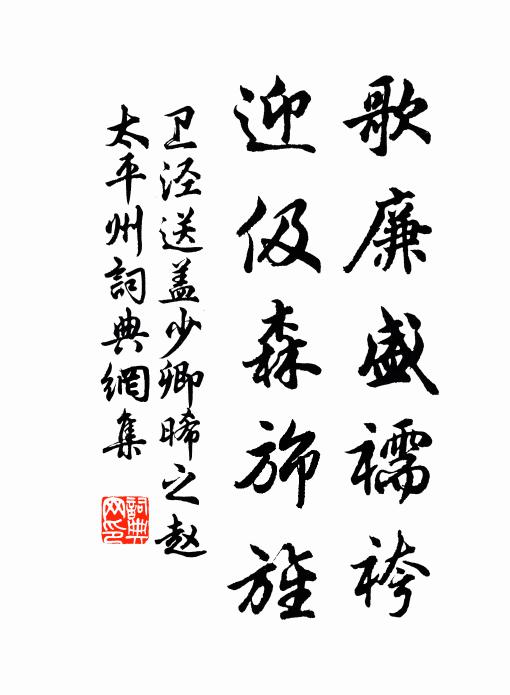 歌廉盛襦袴
迎伋森旆旌
卫泾送盖少卿晞之赵
太平州詞典網集
詞典網印